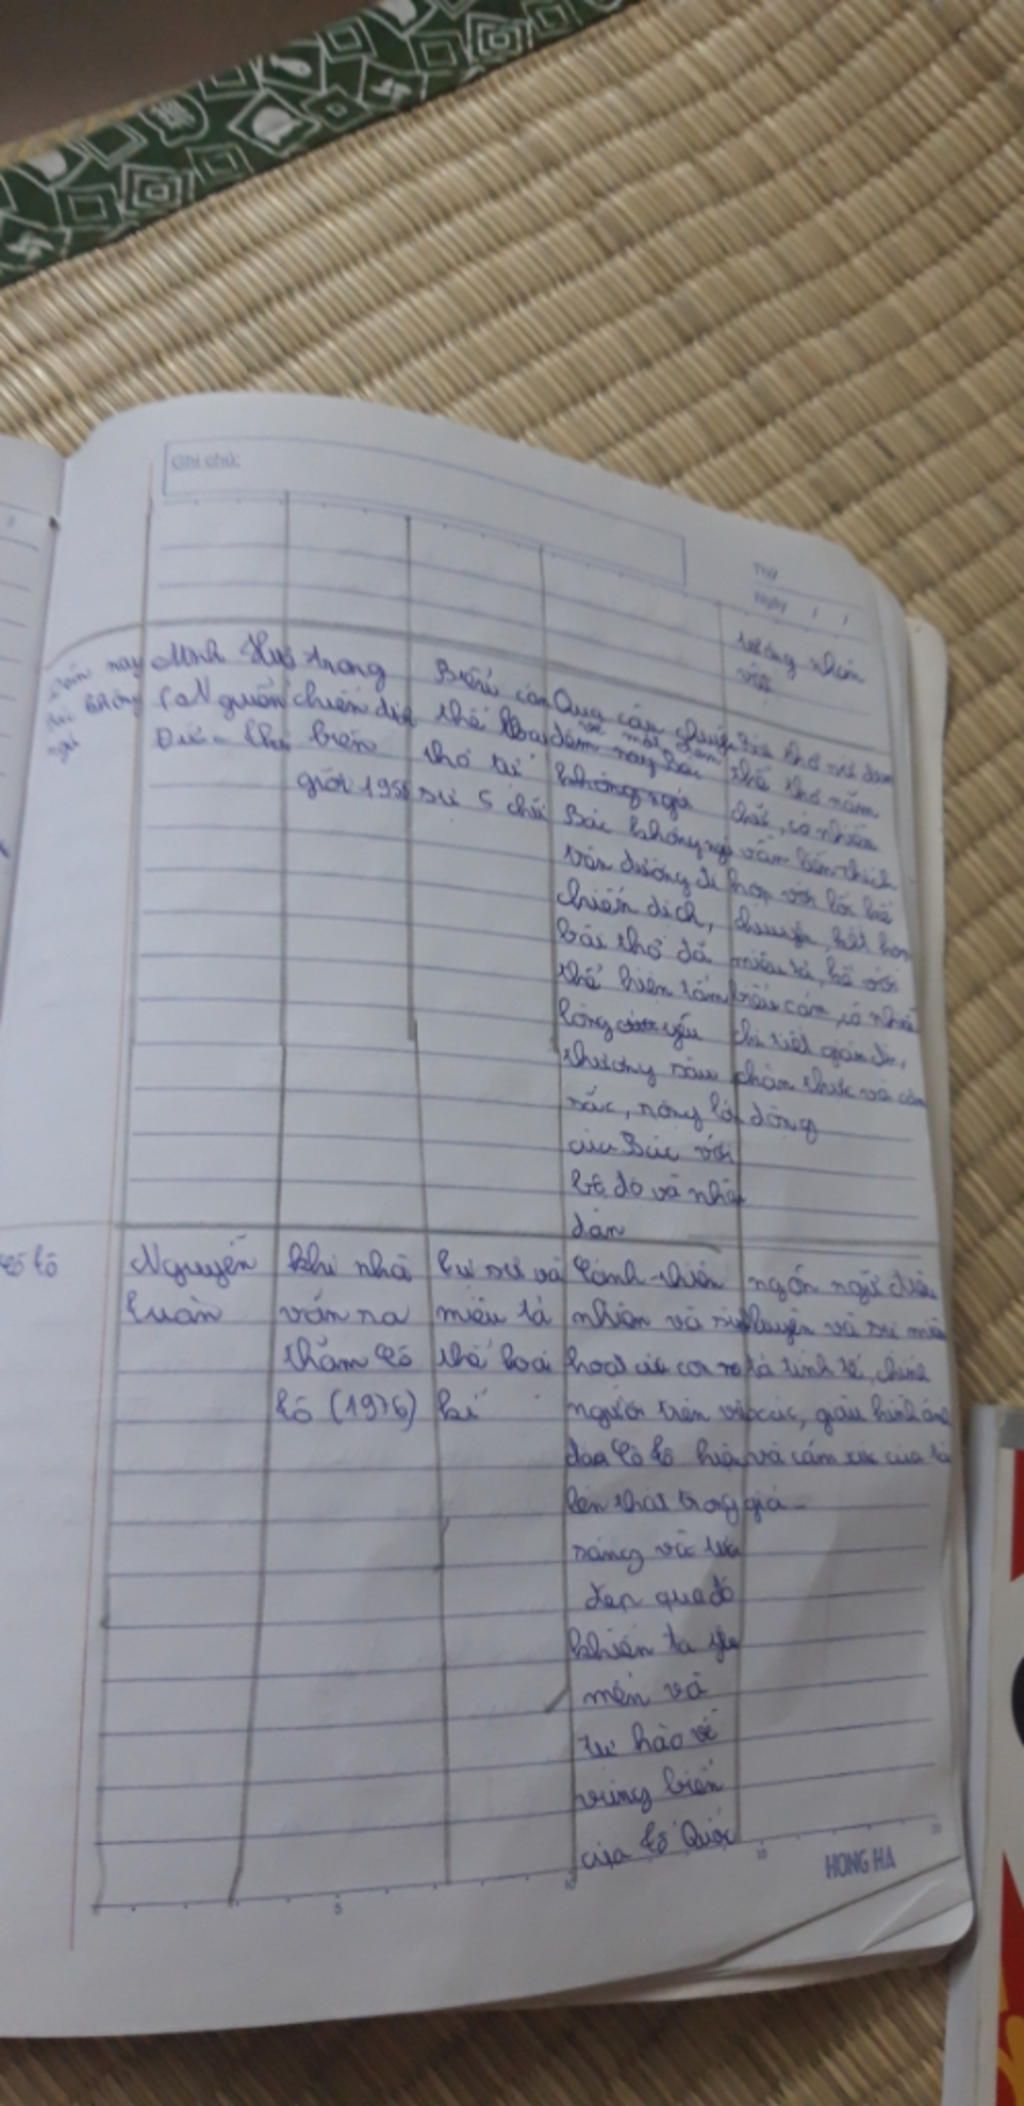 Ghi chú:
Thứ
Ngày / /
tưởng nhân
vật
Đêm nay
Bác không
ngủ
Minh Huệ
(Nguyễn
Đức Thái
trong
chiến dịch
biên
giới 1950
Biểu cảm
thể thơ
thơ tự
sự 5 chữ
Qua câu chuyện
về một đêm
đêm nay Bác
không ngủ
Bác không ngủ
trên đường đi
chiến dịch,
bài thơ đã
thể hiện tấm
lòng yêu
thương sâu
sắc, rộng lớn
của Bác với
bộ đội và nhân
dân
thể thơ năm
chữ, có nhiều
vần liền thích
hợp với lối kể
chuyện, kết hợp
miêu tả, kể với
biểu cảm, có nhiều
chi tiết giản dị,
chân thực và cảm
động
Cô tô
Nguyễn
Tuân
khi nhà
văn ra
thăm Cô
tô (1976)
Tự sự và
miêu tả
thể loại
kí
Cảnh thiên
nhiên và sinh
hoạt của con
người trên vùng
đảo Cô tô hiện
lên thật trong
sáng và tươi
đẹp qua đó
khiến ta yêu
mến và
tự hào về
vùng biển
của tổ Quốc
ngôn ngữ điêu
luyện và sự miêu
tả tinh tế, chính
xác, giàu hình ảnh
và cảm xúc của tác
giả
5
10
15
20
HONG HA